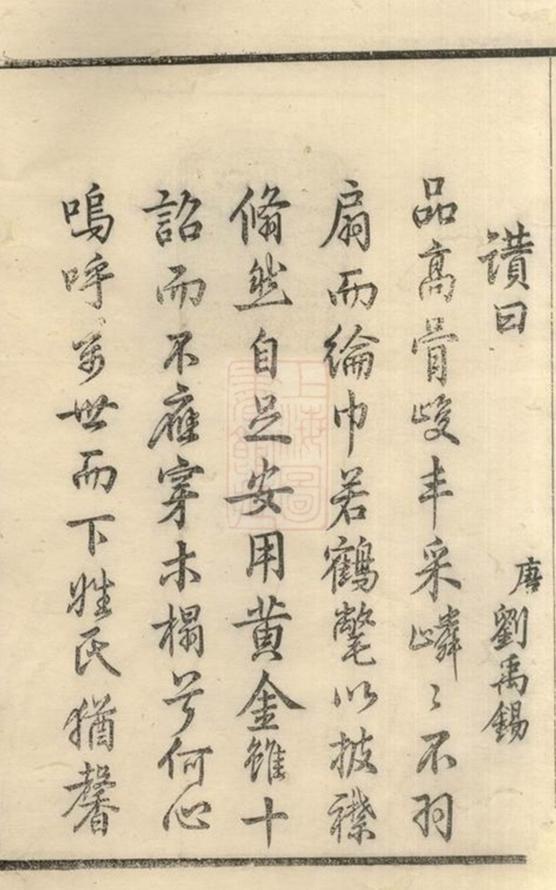 讃曰
唐劉禹錫
品高骨峻丰采嶙〻不羽
扇而綸巾若鶴氅以披襟
翛然自足安用黄金雖十
詔而不應穿木榻兮何心
嗚呼萬世而下姓氏猶馨
上海圖